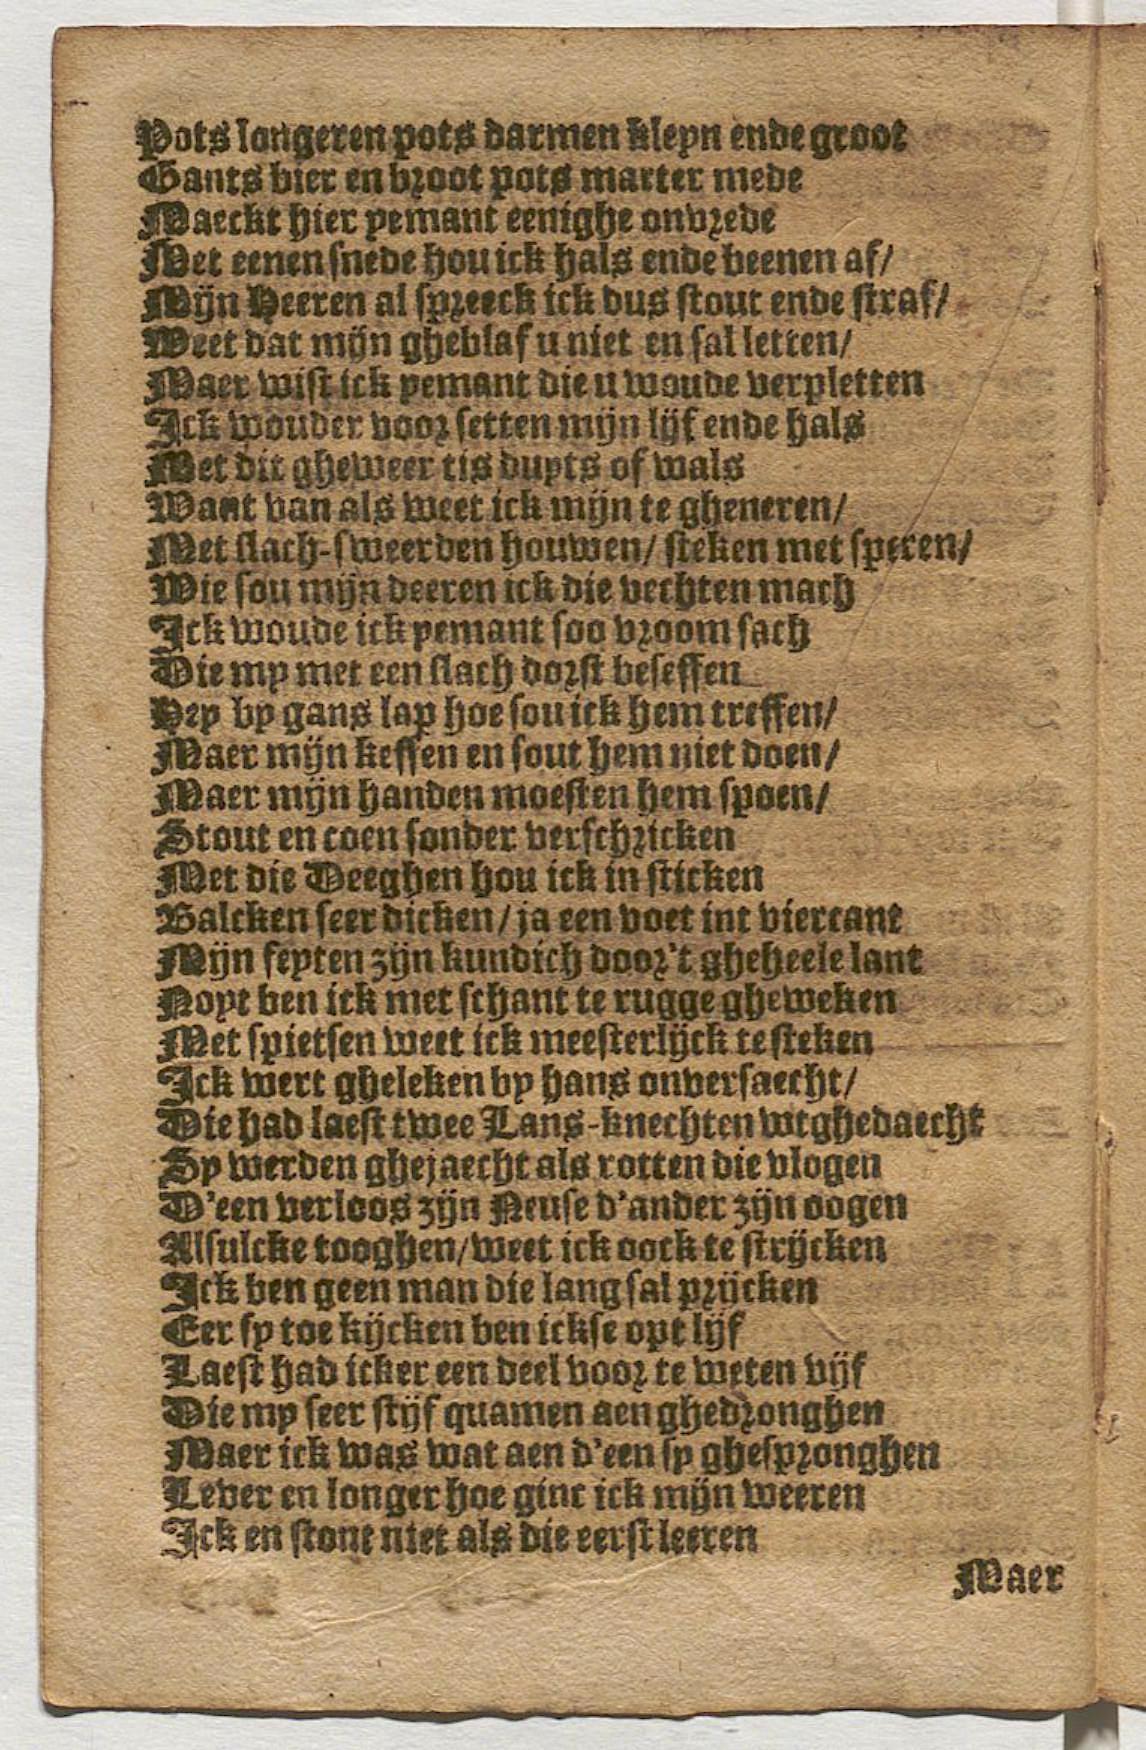 Pots longeren pots darmen kleyn ende groot
Gants bier en broot pots marter mede
Maeckt hier yemant eenighe onvrede
Met eenen snede hou ick hals ende beenen af/
Mijn Heeren al spreeck ick dus stout ende straf/
Weet dat mijn gheblaf u niet en sal letten/
Maer wist ick yemant die u woude verpletten
Ick wouder voor setten mijn lijf ende hals
Met dit gheweer tis duyts of wals
Want van als weet ick mijn te gheneren/
Met slach-sweerden houwen/ steken met speren/
Wie sou mijn deeren ick die vechten mach
Ick woude ick yemant soo vroom sach
Die my met een slach dorst beseffen
Hey by gans lap hoe sou ick hem treffen/
Maer mijn keffen en sout hem niet doen/
Maer mijn handen moesten hem spoen/
Stout en coen sonder verschricken
Met die Deeghen hou ick in sticken
Balcken seer dicken/ ja een voet int viercant
Mijn feyten zijn kundich door't gheheele lant
Noyt ben ick met schant te rugge gheweken
Met spietsen weet ick meesterlijck te steken
Ick wert gheleken by hans onversaecht/
Die had laest twee Lans-knechten wtghedaecht
Sy werden ghejaecht als rotten die vlogen
D'een verloos zijn Neuse d'ander zijn oogen
Alsulcke tooghen/weet ick oock te strijcken
Ick ben geen man die lang sal prijcken
Eer sy toe kijcken ben ickse opt lijf
Laest had icker een deel voor te weten vijf
Die my seer stijf quamen aen ghedronghen
Maer ick was wat aen d'een sy ghespronghen
Lever en longer hoe ginc ick mijn weeren
Ick en stont niet als die eerst leeren
Maer